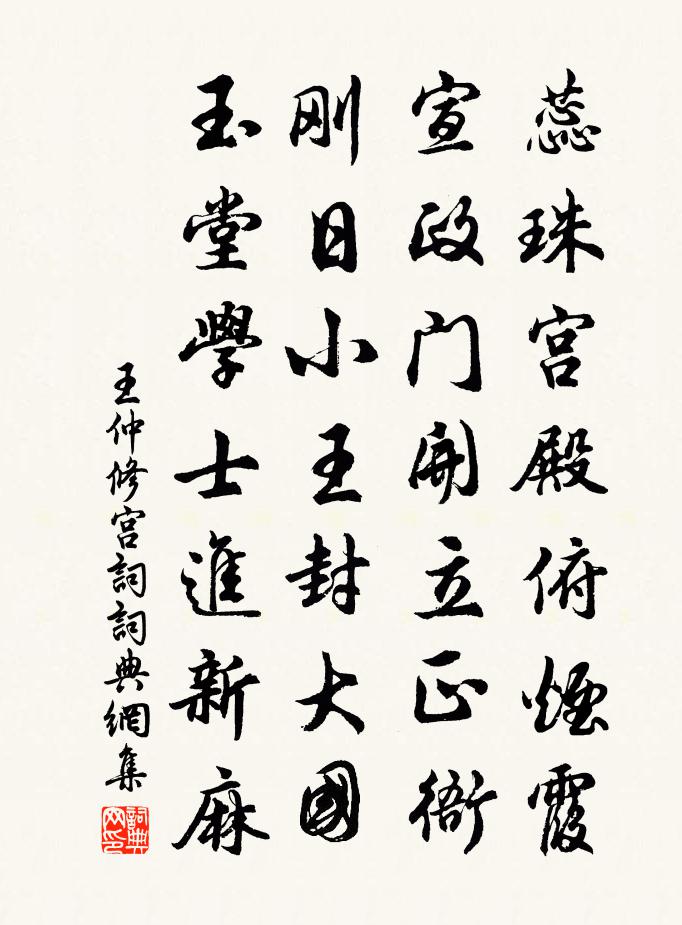 蕊珠宫殿俯煙霞
宣政门開立正衙
刚日小王封大國
玉堂學士進新麻
王仲修宫詞詞典網集
詞典网印